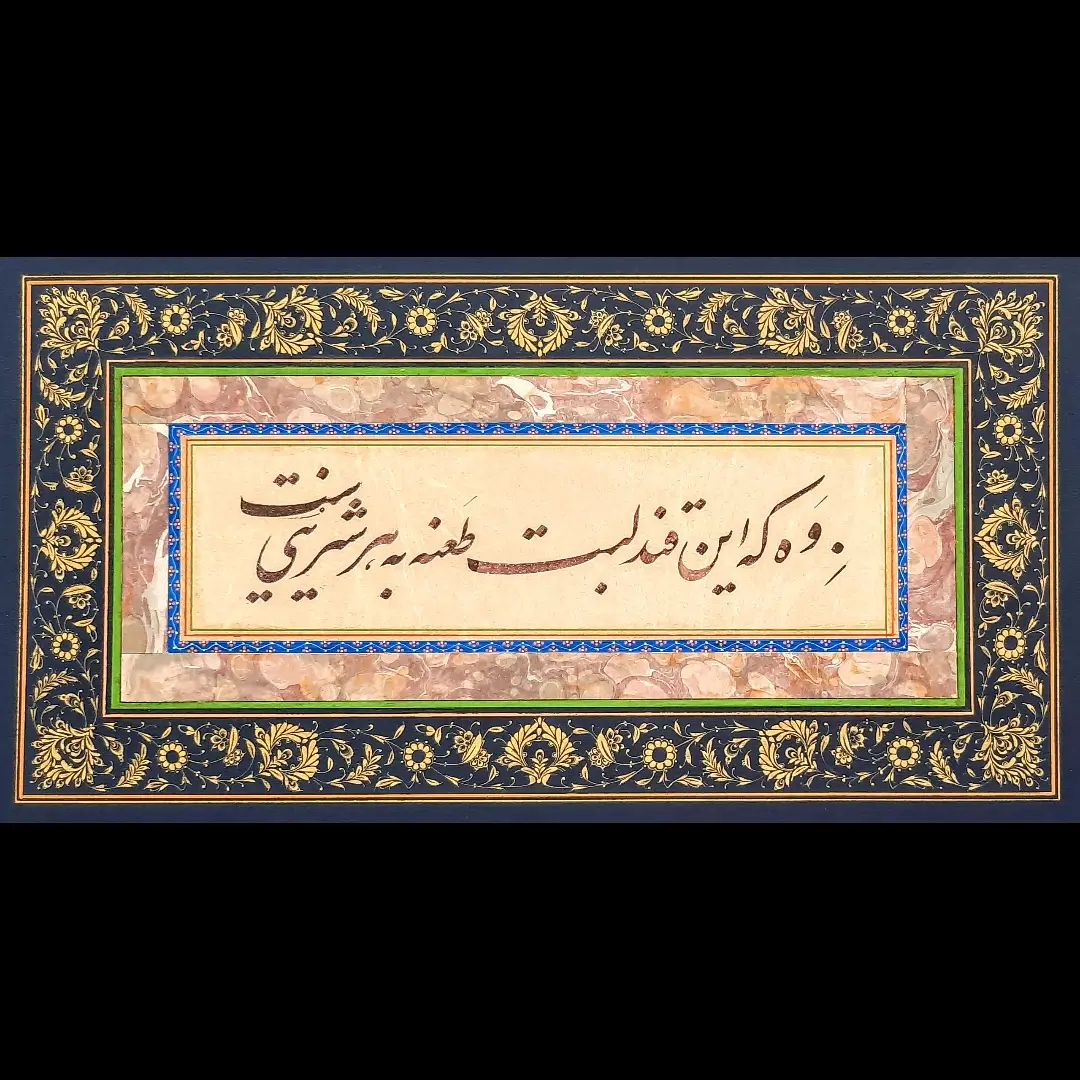 وَه که این قند لبت طَعنه به هر شیرینی ست